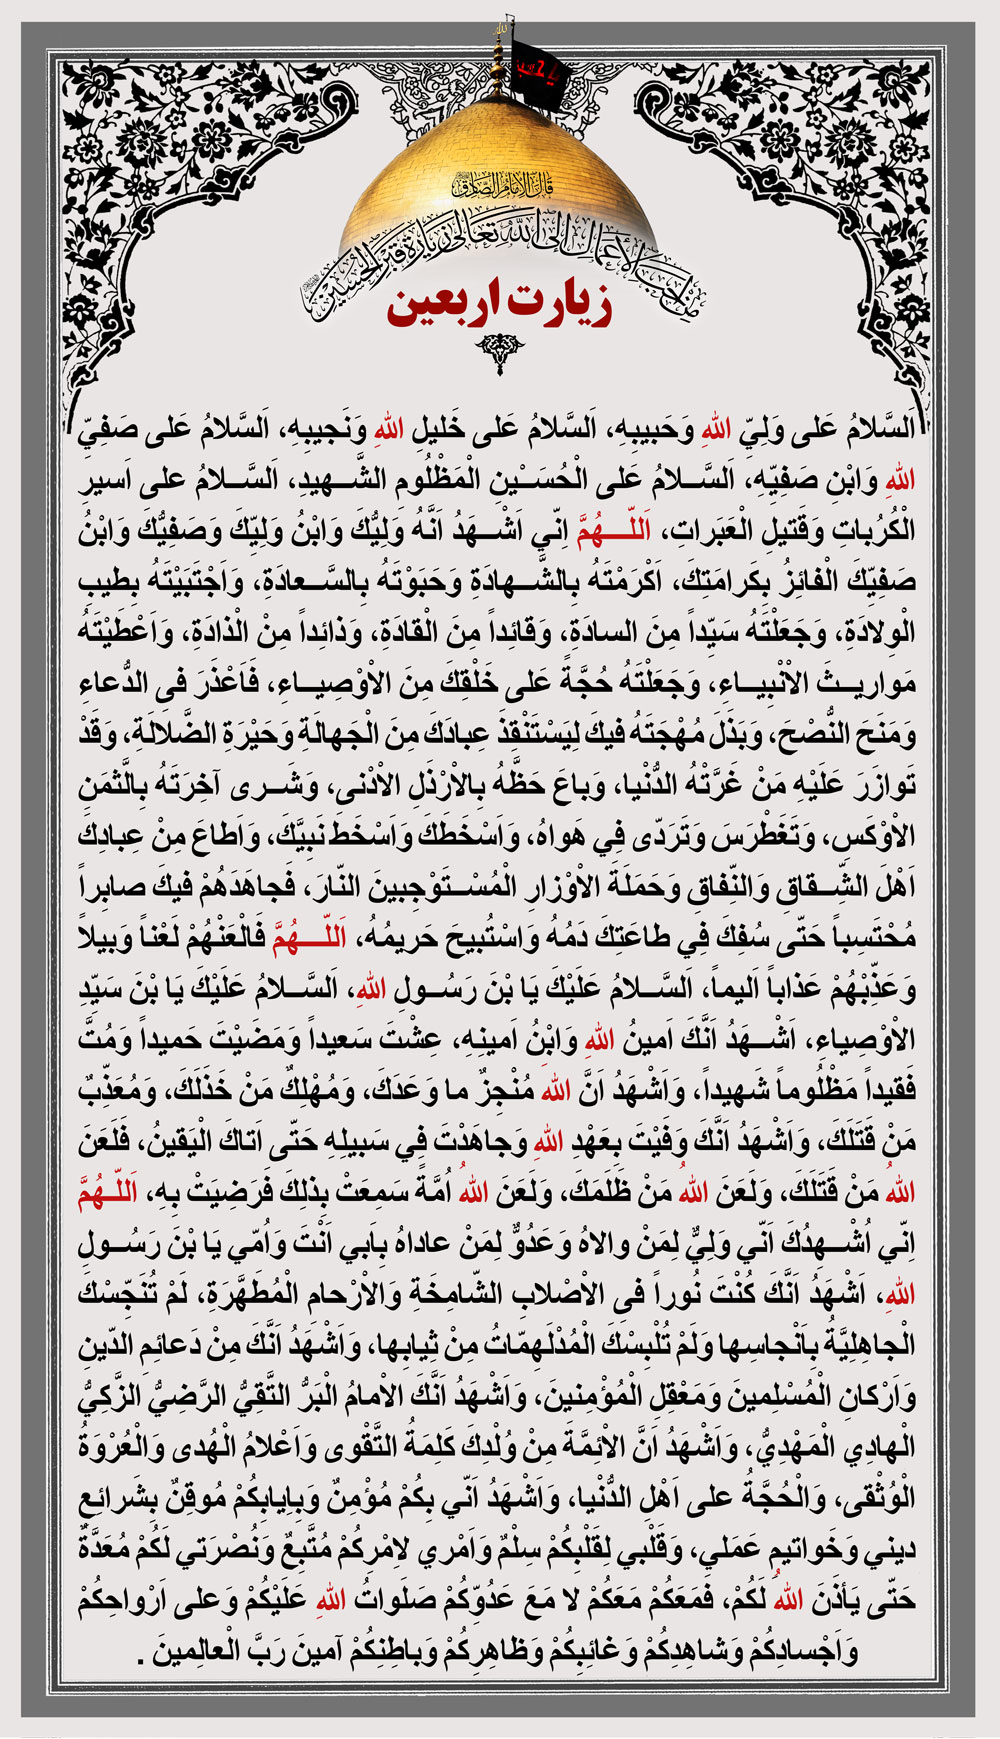 قال الامام الصادق
من احب الأعمال الی الله تعالی زیارة قبر الحسین
زیارت اربعین
اَلسَّلامُ عَلى وَلِيِّ اللهِ وَحَبيبِهِ، اَلسَّلامُ عَلى خَليلِ اللهِ وَنَجيبِهِ، اَلسَّلامُ عَلى صَفِيِّ
اللهِ وَابْنِ صَفِيِّهِ، اَلسَّلامُ عَلى الْحُسَيْنِ الْمَظْلُومِ الشَّهيدِ، اَلسَّلامُ على اَسيرِ
الْكُرُباتِ وَقَتيلِ الْعَبَراتِ، اَللّهُمَّ اِنّي اَشْهَدُ اَنَّهُ وَلِيُّكَ وَابْنُ وَلِيِّكَ وَصَفِيُّكَ وَابْنُ
صَفِيِّكَ الْفائِزُ بِكَرامَتِكَ، اَكْرَمْتَهُ بِالشَّهادَةِ وَحَبَوْتَهُ بِالسَّعادَةِ، وَاَجْتَبَيْتَهُ بِطيبِ
الْوِلادَةِ، وَجَعَلْتَهُ سَيِّداً مِنَ السادَةِ، وَقائِداً مِنَ الْقادَةِ، وَذائِداً مِنْ الْذادَةِ، وَاَعْطَيْتَهُ
مَواريثَ الْاَنْبِياءِ، وَجَعَلْتَهُ حُجَّةً عَلى خَلْقِكَ مِنَ الاْوْصِياءِ، فَاَعْذَرَ فى الدُّعاءِ
وَمَنَحَ النُّصْحَ، وَبَذَلَ مُهْجَتَهُ فيكَ لِيَسْتَنْقِذَ عِبادَكَ مِنَ الْجَهالَةِ وَحَيْرَةِ الضَّلالَةِ، وَقَدْ
تَوازَرَ عَلَيْهِ مَنْ غَرَّتْهُ الدُّنْيا، وَباعَ حَظَّهُ بِالاْرْذَلِ الاْدْنى، وَشَرى آخِرَتَهُ بِالَّثمَنِ
الاْوْكَسِ، وَتَغَطْرَسَ وَتَرَدّى فِي هَواهُ، وَاَسْخَطَكَ وَاَسْخَطَ نَبِيَّكَ، وَاَطاعَ مِنْ عِبادِكَ
اَهْلَ الشِّقاقِ وَالنِّفاقِ وَحَمَلَةَ الاْوْزارِ الْمُسْتَوْجِبينَ النّارَ، فَجاهَدَهُمْ فيكَ صابِراً
مُحْتَسِباً حَتّى سُفِكَ فِي طاعَتِكَ دَمُهُ وَاسْتُبيح حَريمُهُ، اَللّهُمَّ فَالْعَنْهُمْ لَعْناً وَبيلاً
وَعَذِّبْهُمْ عَذاباً اَليما، اَلسَّلامُ عَلَيْكَ يَا بْنَ رَسُولِ اللهِ، اَلسَّلامُ عَلَيْكَ يَا بْنَ سَيِّدِ
الاْوْصِياءِ، اَشْهَدُ اَنَّكَ اَمينُ اللهِ وَابْنُ اَمينِهِ، عِشْتَ سَعيداً وَمَضَيْتَ حَميداً وَمُتَّ
فَقيداً مَظْلُوماً شَهيداً، وَاَشْهَدُ اَنَّ اللهَ مُنْجِزٌ ما وَعَدَكَ، وَمُهْلِكٌ مَنْ خَذَلَكَ، وَمُعَذِّبٌ
مَنْ قَتَلَكَ، وَاَشْهَدُ اَنَّكَ وَفَيْتَ بِعَهْدِ اللهِ وَجاهَدْتَ فِي سَبيلِهِ حَتّى اَتاكَ الْيَقينُ، فَلَعَنَ
اللهُ مَنْ قَتَلَكَ، وَلَعَنَ اللهُ مَنْ ظَلَمَكَ، وَلَعَنَ اللهُ اُمَّةً سَمِعَتْ بِذلِكَ فَرَضِيَتْ بِهِ، اَللّهُمَّ
اِنّي اُشْهِدُكَ اَنّي وَلِيٌّ لِمَنْ والاهُ وَعَدُوٌّ لِمَنْ عاداهُ بِاَبي اَنْتَ وَاُمّي يَا بْنَ رَسُولِ
اللهِ، اَشْهَدُ اَنَّكَ كُنْتَ نُوراً فى الاْصْلابِ الشّامِخَةِ وَالاْرْحامِ الْمُطَهَّرَةِ، لَمْ تُنَجِّسْكَ
الْجاهِلِيَّةُ بِاَنْجاسِها وَلَمْ تُلْبِسْكَ الْمُدْلَهِمّاتُ مِنْ ثِيابِها، وَاَشْهَدُ اَنَّكَ مِنْ دَعائِمِ الدّينِ
وَاَرْكانِ الْمُسْلِمينَ وَمَعْقِلِ الْمُؤْمِنينَ، وَاَشْهَدُ اَنَّكَ الاْمامُ الْبَرُّ التَّقِيُّ الرَّضِيُّ الزَّكِيُّ
الْهادِي الْمَهْدِيُّ، وَاَشْهَدُ اَنَّ الاْئِمَّةَ مِنْ وُلْدِكَ كَلِمَةُ التَّقْوى وَاَعْلامُ الْهُدى وَالْعُرْوَةُ
الْوُثْقى، وَالْحُجَّةُ على اَهْلِ الدُّنْيا، وَاَشْهَدُ اَنّي بِكُمْ مُؤْمِنٌ وَبِاِيابِكُمْ مُوقِنٌ بِشَرائِعِ
ديني وَخَواتيمِ عَمَلي، وَقَلْبي لِقَلْبِكُمْ سِلْمٌ وَاَمْري لاِمْرِكُمْ مُتَّبِعٌ وَنُصْرَتي لَكُمْ مُعَدَّةٌ
حَتّى يَأذَنَ اللهُ لَكُمْ، فَمَعَكُمْ مَعَكُمْ لا مَعَ عَدُوِّكُمْ صَلَواتُ اللهِ عَلَيْكُمْ وَعلى اَرْواحِكُمْ
وَاَجْسادِكُمْ وَشاهِدِكُمْ وَغائِبِكُمْ وَظاهِرِكُمْ وَباطِنِكُمْ آمينَ رَبَّ الْعالِمينَ .